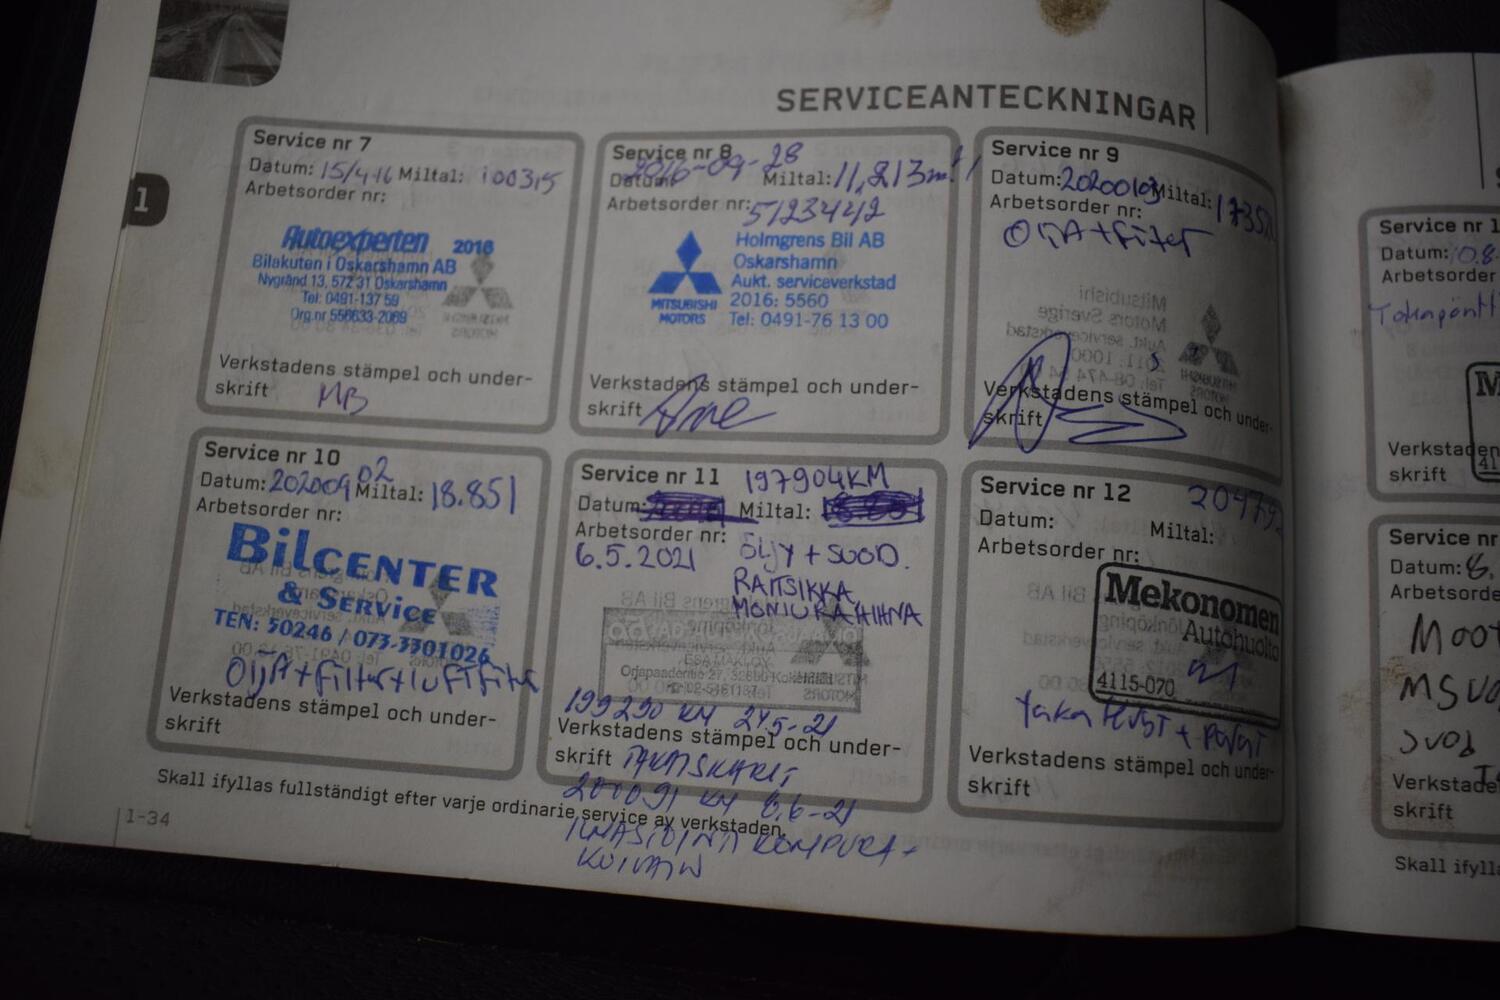 SERVICEANTECKNINGAR
1
Service nr 7
Datum: 15/4-16 Miltal: 100315
Arbetsorder nr:
Autoexperten 2016
Bilakuten i Oskarshamn AB
Nygränd 13, 572 31 Oskarshamn
Tel: 0491-137 59
Org.nr 556633-2069
Verkstadens stämpel och under-
skrift MB
Service nr 8
Datum: 2016-09-28 Miltal: 11,213mil
Arbetsorder nr: 5123442
MITSUBISHI
MOTORS
Holmgrens Bil AB
Oskarshamn
Aukt. serviceverkstad
2016: 5560
Tel: 0491-76 13 00
Verkstadens stämpel och under-
skrift
Service nr 9
Datum: 20200103 Miltal: 1735
Arbetsorder nr:
OljA + filter
Verkstadens stämpel och under-
skrift
Service nr 10
Datum: 20200902 Miltal: 18.851
Arbetsorder nr:
BILCENTER
& SERVICE
TEN: 50246 / 073-3301026
OljA + filter + luftfilter
Verkstadens stämpel och under-
skrift
Service nr 11 197904KM
Datum: Miltal:
Arbetsorder nr:
6.5.2021 ÖLJY + SUOD.
RAITISIKKA,
MONIURAHIHNA
199290 KM 24.5-21
Verkstadens stämpel och under-
skrift TAKAISKARIT
200091 KM 8.6-21
ILMASTOINTI KOMPURA +
KUIVAIN
Service nr 12 20479
Datum: Miltal:
Arbetsorder nr:
Mekonomen
Autohuolto
4115-070
Verkstadens stämpel och under-
skrift
Skall ifyllas fullständigt efter varje ordinarie service av verkstaden.
1-34
Service nr 1
Datum: 10.8.
Arbetsorder
M
Verkstaden
skrift
Service nr
Datum: 8.
Arbetsorde
Moot
Verkstade
skrift
Skall ifylla